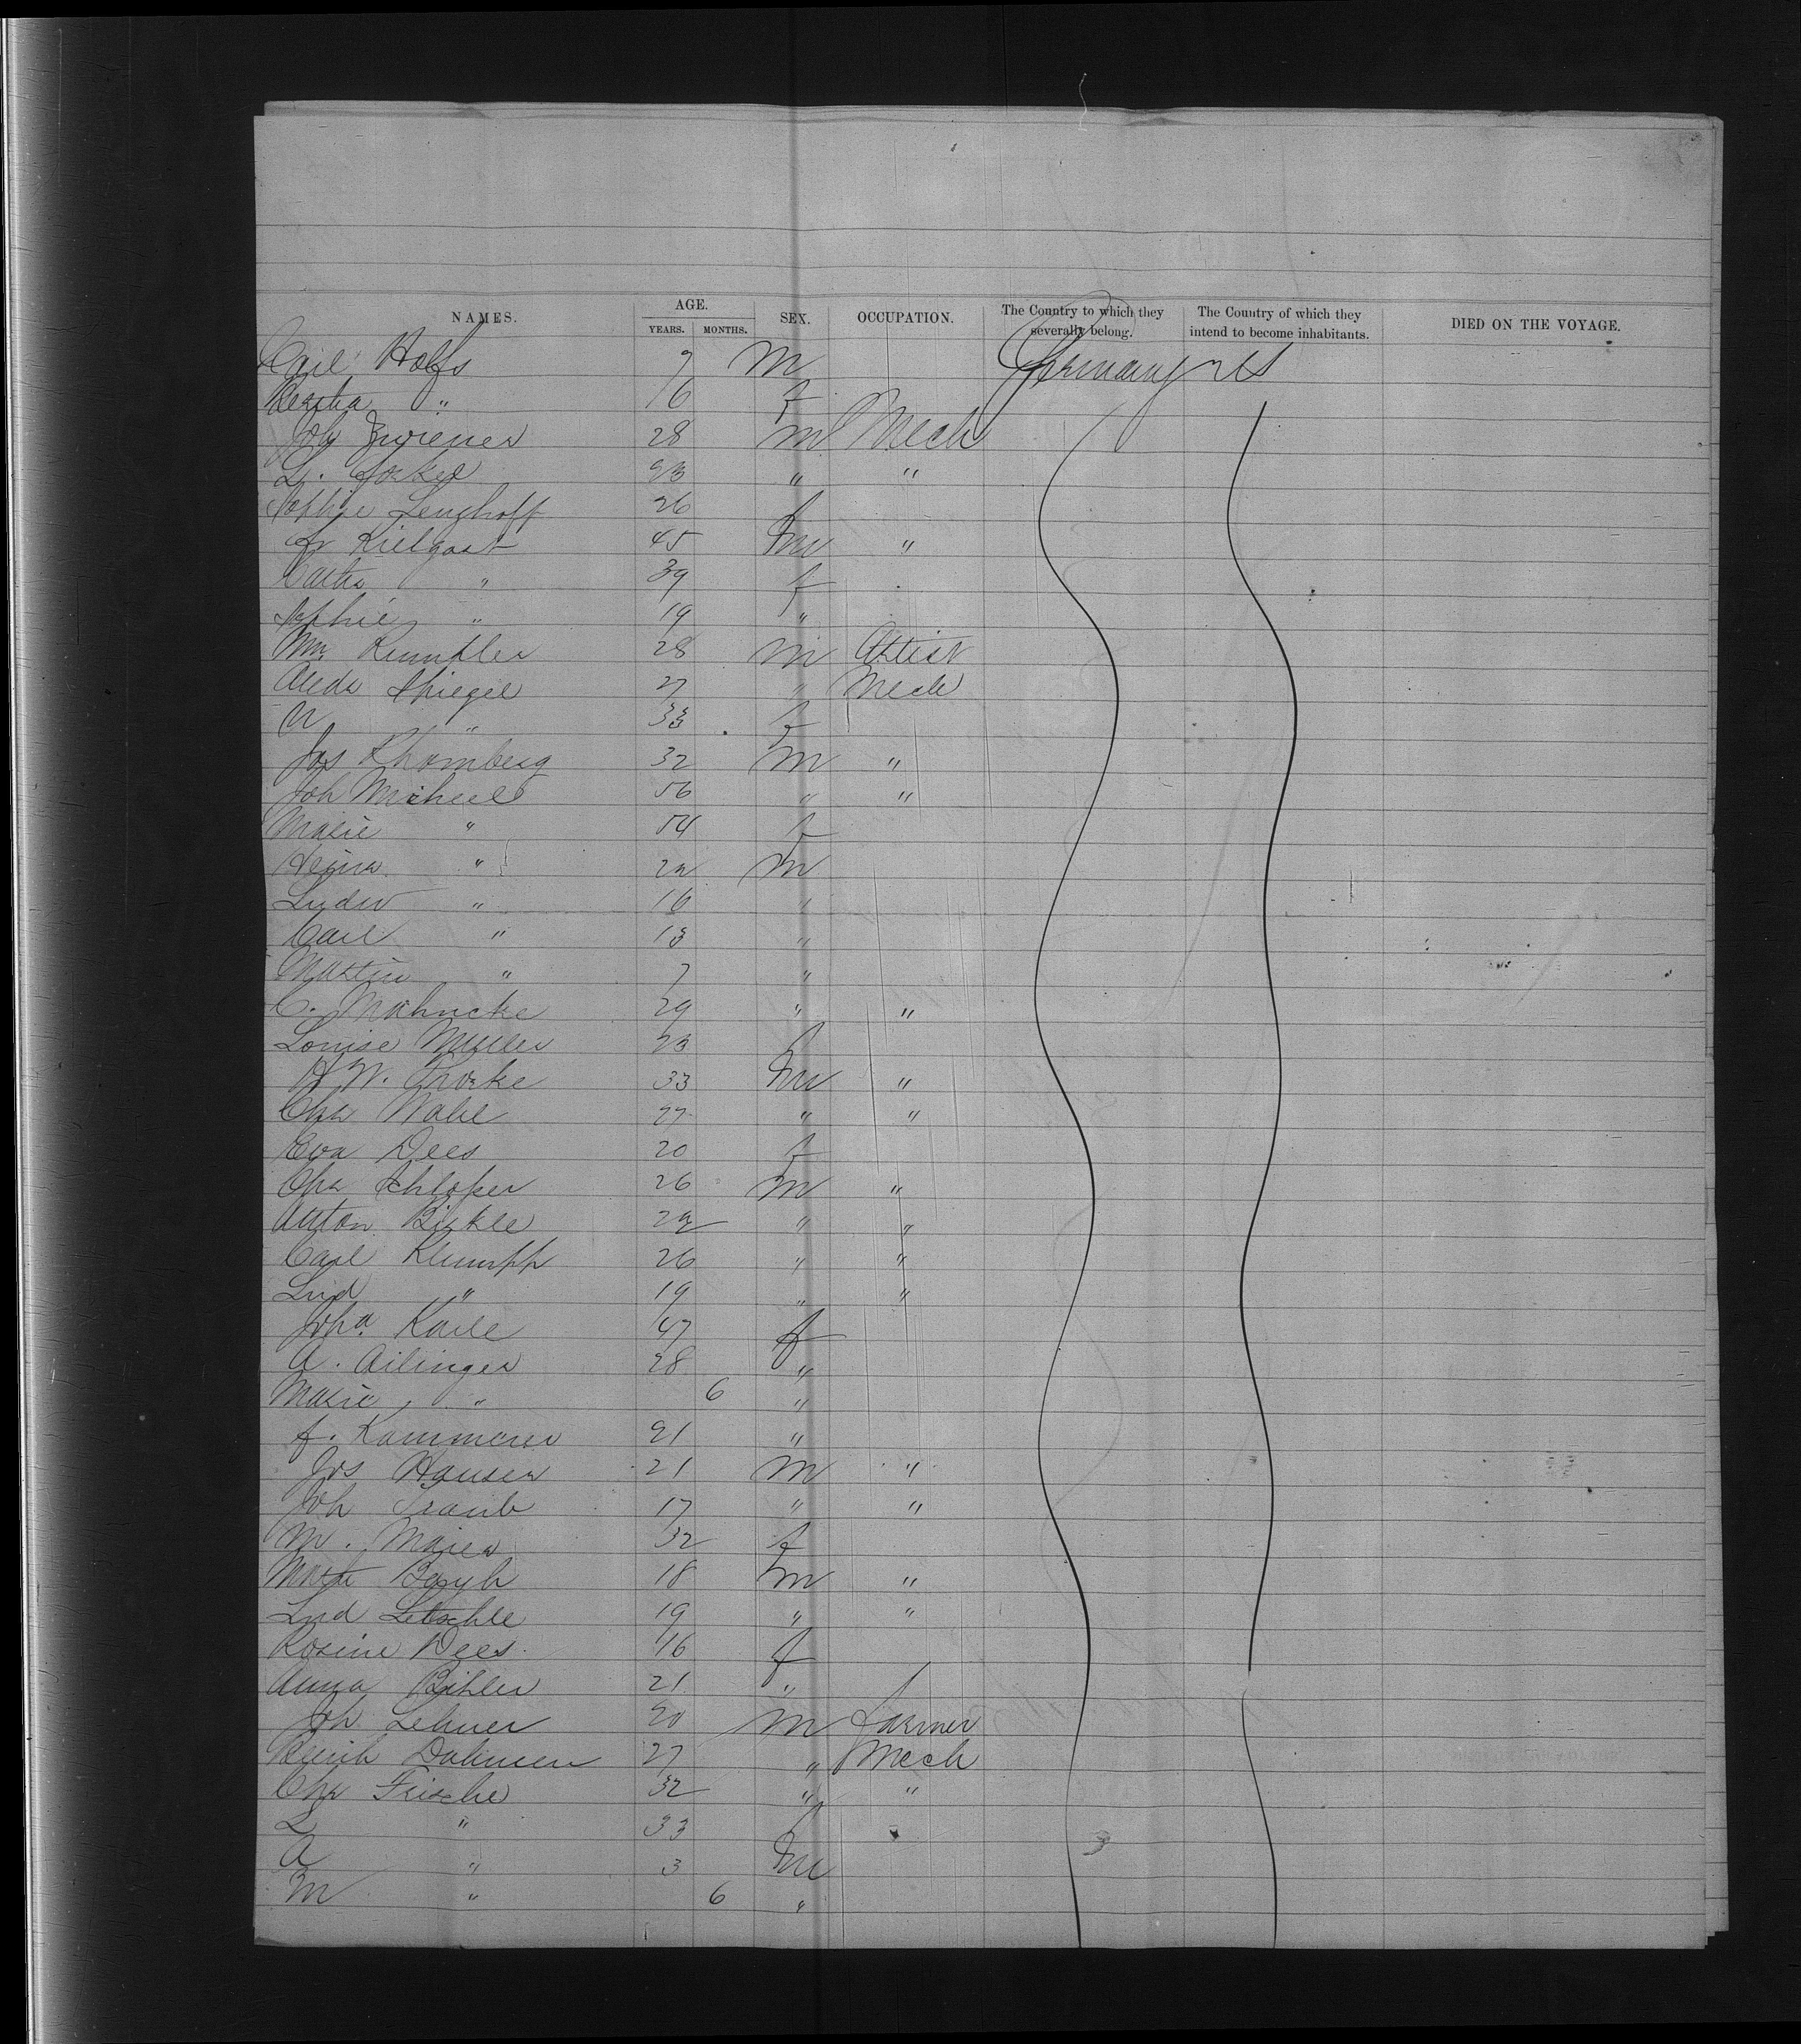 NAMES. AGE. YEARS. MONTHS. SEX. OCCUPATION. The Country to which they severally belong. The Country of which they intend to become inhabitants. DIED ON THE VOYAGE.
Carl Holfs 7 m Germany US
Bertha " 16 f
Joh Zwiener 28 m Mech
L. Jockel 23 " "
Sophie Lenghoff 26 f
Fr Kielgast 45 m "
Catha " 39 f
Sophie " 19 "
Wm. Kumpler 28 m Artist
Alida Spiegel 27 " Mech
W " 33 f
Jos Rhomberg 32 m "
Joh Micheel 56 " "
Marie " 54 f
Heinr " 22 m
Ludw " 16 "
Carl " 13 "
Martin " 7 "
C. Mahncke 29 " "
Louise Muller 23 f
H W. 33 m "
Chr Wahl 27 " "
Eva Dees 20 f
Chr Schloper 26 m "
Anton Birkle 22 " "
Carl Klumpp 26 " "
Lud " 19 " "
Joha. Karle 47 f
A. Ailinger 28 "
Marie " 6 "
F. Kammerer 21 "
Jos Hauser 21 m "
Joh Traub 17 " "
M. Maier 32 f
18 m "
Lud Letschle 19 " "
Rosine Dees 16 f
Anna Bihler 21 "
Joh Lehner 20 m Farmer
Dahmen 27 " Mech
Chr Frische 32 " "
L " 33 f
A " 3 m
M " 6 "